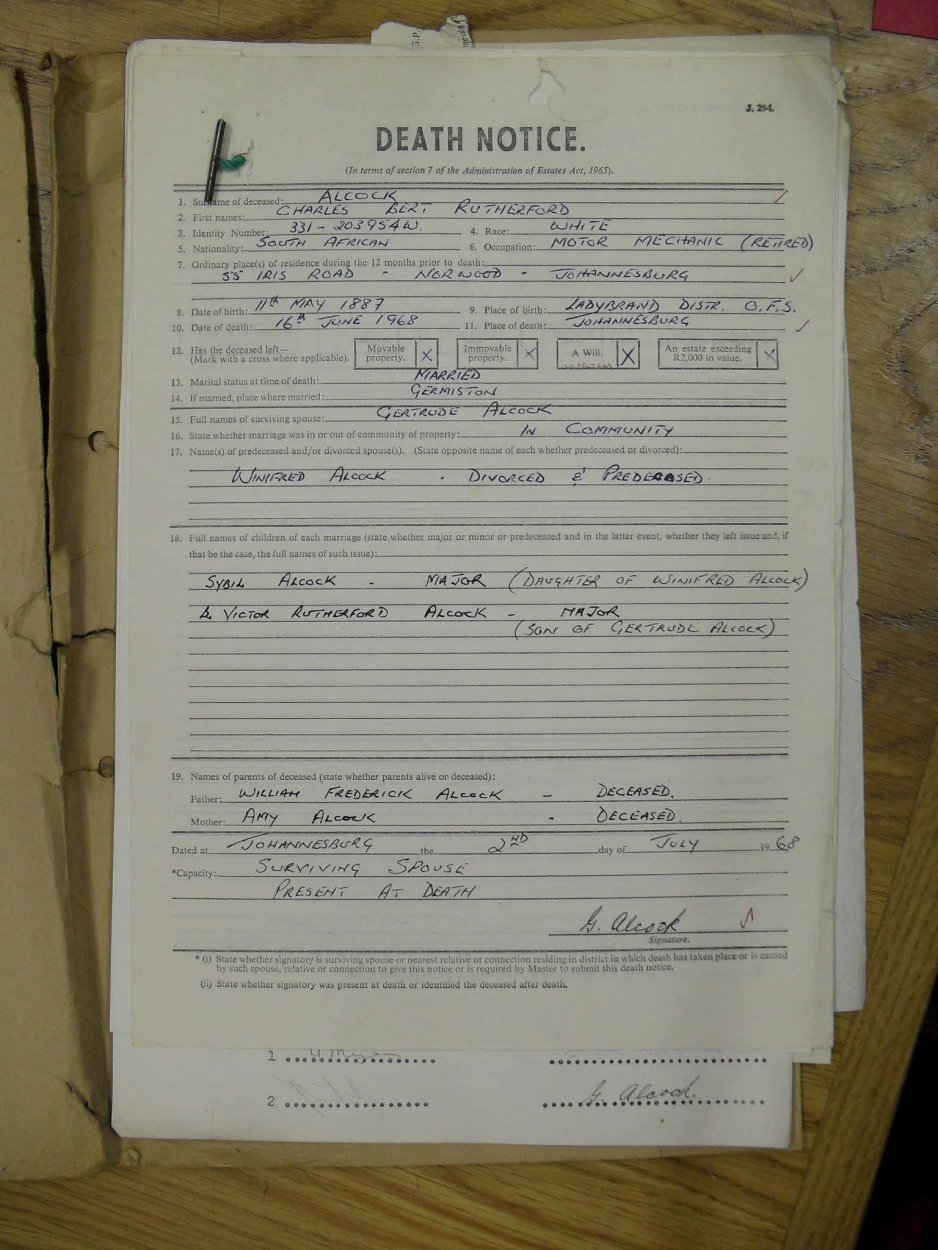 J. 294.
DEATH NOTICE.
(In terms of section 7 of the Administration of Estates Act, 1965).
1. Surname of deceased: ALCOCK
2. First names: CHARLES BERT RUTHERFORD
3. Identity Number: 331 - 203954W. 4. Race: WHITE
5. Nationality: SOUTH AFRICAN 6. Occupation: MOTOR MECHANIC (RETIRED)
7. Ordinary place(s) of residence during the 12 months prior to death:
55 IRIS ROAD - NORWOOD - JOHANNESBURG
8. Date of birth: 11th MAY 1887 9. Place of birth: LADYBRAND DISTR. O.F.S.
10. Date of death: 16th JUNE 1968 11. Place of death: JOHANNESBURG
12. Has the deceased left— Movable property. X Immovable property. X A Will. X An estate exceeding R2,000 in value. X
(Mark with a cross where applicable).
13. Marital status at time of death: MARRIED
14. If married, place where married: GERMISTON
15. Full names of surviving spouse: GERTRUDE ALCOCK
16. State whether marriage was in or out of community of property: IN COMMUNITY
17. Name(s) of predeceased and/or divorced spouse(s). (State opposite name of each whether predeceased or divorced):
WINIFRED ALCOCK - DIVORCED & PREDECEASED.
18. Full names of children of each marriage (state whether major or minor or predeceased and in the latter event, whether they left issue and, if
that be the case, the full names of such issue):
SYBIL ALCOCK - MAJOR (DAUGHTER OF WINIFRED ALCOCK)
VICTOR RUTHERFORD ALCOCK - MAJOR
(SON OF GERTRUDE ALCOCK)
19. Names of parents of deceased (state whether parents alive or deceased):
Father: WILLIAM FREDERICK ALCOCK - DECEASED.
Mother: AMY ALCOCK - DECEASED.
Dated at JOHANNESBURG the 2ND day of JULY 1968
*Capacity: SURVIVING SPOUSE
PRESENT AT DEATH
G. Alcock
Signature.
* (i) State whether signatory is surviving spouse or nearest relative or connection residing in district in which death has taken place or is caused
by such spouse, relative or connection to give this notice or is required by Master to submit this death notice.
(ii) State whether signatory was present at death or identified the deceased after death.
1
2 G. Alcock.